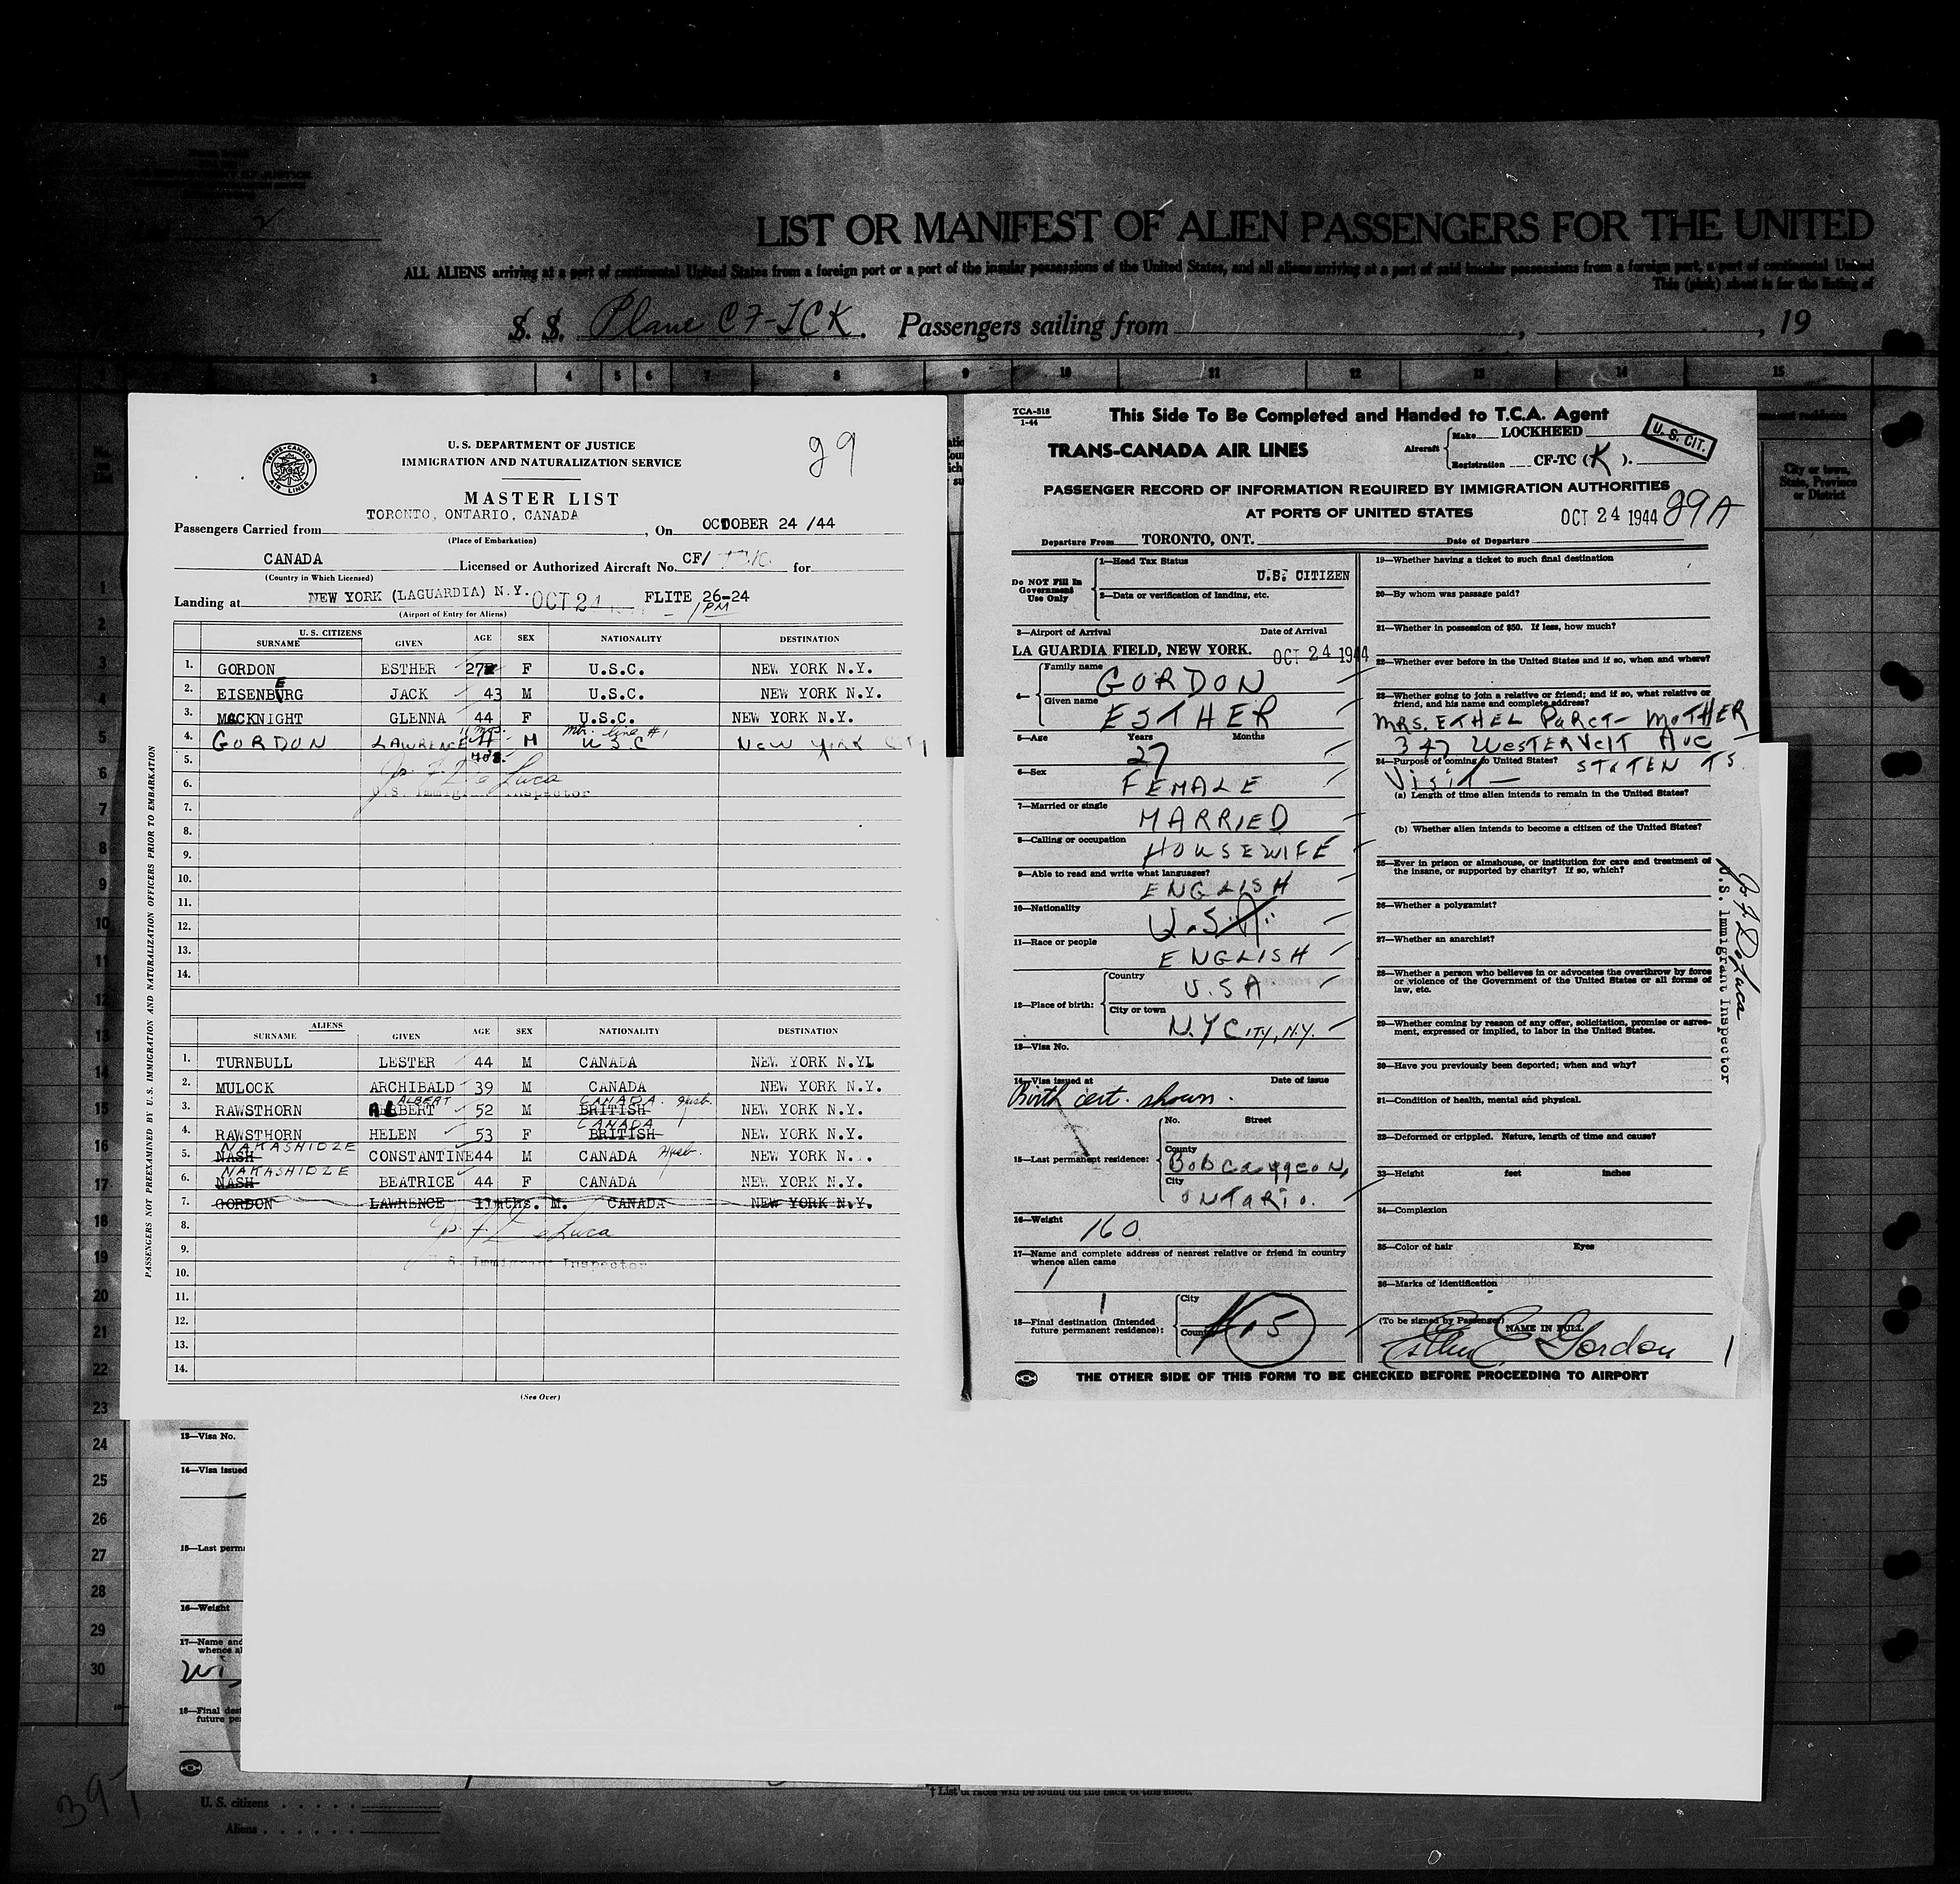 LIST OR MANIFEST OF ALIEN PASSENGERS FOR THE UNITED
ALL ALIENS arriving at a port of continental United States from a foreign port or a port of the insular possessions of the United States, and all aliens arriving at a port of said insular possessions from a foreign port, a port of continental United
This (pink) sheet is for the listing of
S. S. Plane CF-TCK. Passengers sailing from , , 19
3 4 5 6 7 8 9 10 11 12 13 14 15
TRANS-CANADA AIR LINES
U. S. DEPARTMENT OF JUSTICE
IMMIGRATION AND NATURALIZATION SERVICE
29
MASTER LIST
Passengers Carried from TORONTO, ONTARIO, CANADA, On OCTOBER 24 /44
(Place of Embarkation)
CANADA Licensed or Authorized Aircraft No. CF/ for
(Country in Which Licensed)
Landing at NEW YORK (LAGUARDIA) N.Y. OCT 24 FLITE 26-24
(Airport of Entry for Aliens) 1PM
U. S. CITIZENS
SURNAME GIVEN AGE SEX NATIONALITY DESTINATION
1. GORDON ESTHER 27 F U.S.C. NEW YORK N.Y.
2. EISENBERG JACK 43 M U.S.C. NEW YORK N.Y.
3. MACKNIGHT GLENNA 44 F U.S.C. NEW YORK N.Y.
4. GORDON LAWRENCE 11 mos. M U S C NEW YORK CITY
mtr. line #1
5.
6. Jos. F. DeLuca
U.S. Immigrant Inspector
7.
8.
9.
10.
11.
12.
13.
14.
ALIENS
SURNAME GIVEN AGE SEX NATIONALITY DESTINATION
1. TURNBULL LESTER 44 M CANADA NEW YORK N.YL
2. MULOCK ARCHIBALD 39 M CANADA NEW YORK N.Y.
ALBERT CANADA. Husb.
3. RAWSTHORN ALBERT 52 M BRITISH NEW YORK N.Y.
CANADA
4. RAWSTHORN HELEN 53 F BRITISH NEW YORK N.Y.
NAKASHIDZE
5. NASH CONSTANTINE 44 M CANADA Husb. NEW YORK N..
NAKASHIDZE
6. NASH BEATRICE 44 F CANADA NEW YORK N.Y.
7. GORDON LAWRENCE 11mths. M. CANADA NEW YORK N.Y.
8. Jos. F. DeLuca
9. U.S. Immigrant Inspector
10.
11.
12.
13.
14.
(See Over)
PASSENGERS NOT PREEXAMINED BY U.S. IMMIGRATION AND NATURALIZATION OFFICERS PRIOR TO EMBARKATION
TCA-518
1-44
This Side To Be Completed and Handed to T.C.A. Agent
TRANS-CANADA AIR LINES
Aircraft Make LOCKHEED
Registration CF-TC (K).
U. S. CIT.
PASSENGER RECORD OF INFORMATION REQUIRED BY IMMIGRATION AUTHORITIES
AT PORTS OF UNITED STATES
OCT 24 1944 29A
Departure From TORONTO, ONT. Date of Departure
Do NOT Fill In
Government
Use Only
1—Head Tax Status
U.S. CITIZEN
2—Data or verification of landing, etc.
3—Airport of Arrival Date of Arrival
LA GUARDIA FIELD, NEW YORK. OCT 24 1944
4— Family name GORDON
Given name ESTHER
5—Age Years Months
27
6—Sex FEMALE
7—Married or single MARRIED
8—Calling or occupation HOUSEWIFE
9—Able to read and write what languages?
ENGLISH
10—Nationality U.S.A.
11—Race or people ENGLISH
12—Place of birth: Country U.S.A
City or town N.Y CITY, N.Y.
13—Visa No.
14—Visa issued at Date of issue
Birth cert. shown.
15—Last permanent residence: No. Street
County Bobcaygeon,
City ONTARIO.
16—Weight 160
17—Name and complete address of nearest relative or friend in country
whence alien came
18—Final destination (Intended
future permanent residence): City
County
5
19—Whether having a ticket to such final destination
20—By whom was passage paid?
21—Whether in possession of $50. If less, how much?
22—Whether ever before in the United States and if so, when and where?
23—Whether going to join a relative or friend; and if so, what relative or
friend, and his name and complete address?
MRS. ETHEL PARCT- MOTHER
347 WESTERVELT AVE
24—Purpose of coming to United States? STATEN IS.
Visit —
(a) Length of time alien intends to remain in the United States?
(b) Whether alien intends to become a citizen of the United States?
25—Ever in prison or almshouse, or institution for care and treatment of
the insane, or supported by charity? If so, which?
26—Whether a polygamist?
27—Whether an anarchist?
28—Whether a person who believes in or advocates the overthrow by force
or violence of the Government of the United States or all forms of
law, etc.
29—Whether coming by reason of any offer, solicitation, promise or agree-
ment, expressed or implied, to labor in the United States.
30—Have you previously been deported; when and why?
31—Condition of health, mental and physical.
32—Deformed or crippled. Nature, length of time and cause?
33—Height feet inches
34—Complexion
35—Color of hair Eyes
36—Marks of identification
(To be signed by Passenger) NAME IN FULL
Esther E Gordon
THE OTHER SIDE OF THIS FORM TO BE CHECKED BEFORE PROCEEDING TO AIRPORT
Jos F DeLuca
U.S. Immigrant Inspector
City or town,
State, Province
or District
1
2
3
4
5
6
7
8
9
10
11
12
13
14
15
16
17
18
19
20
21
22
23
24
25
26
27
28
29
30
13—Visa No.
14—Visa issued
15—Last perm
16—Weight
17—Name and
whence al
18—Final dest
future pe
U. S. citizens
Aliens
† List of races will be found on the back of this sheet.